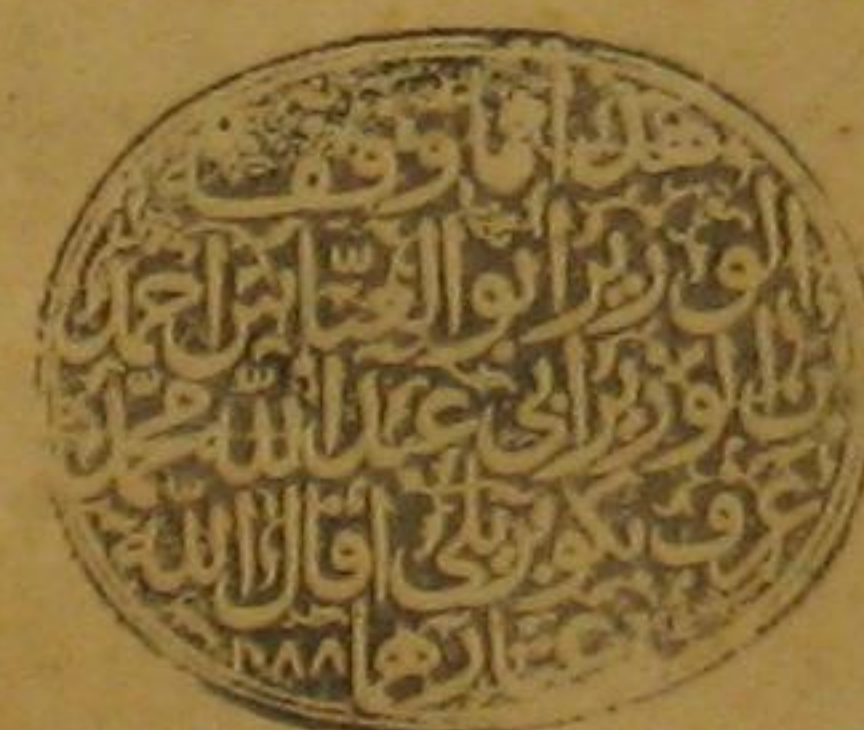 هذا ما وقف
الوزير ابو العباس احمد
بن الوزير ابي عبد الله محمد
عرف بكوبريلى اقال الله
عثارهما ١٠٨٨